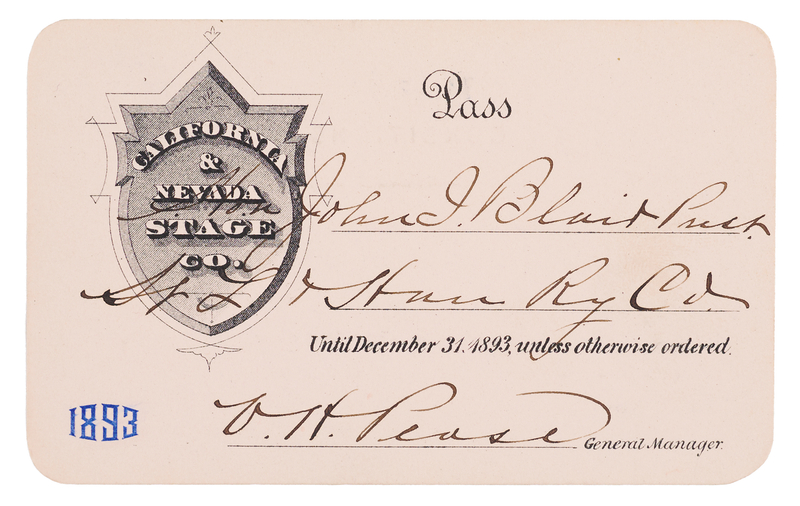 Pass
CALIFORNIA
&
NEVADA
STAGE
CO.
Hon John I. Blair Prest.
St L & Han Ry Co.
Until December 31, 1893, unless otherwise ordered.
1893
V. H. Pease
General Manager.